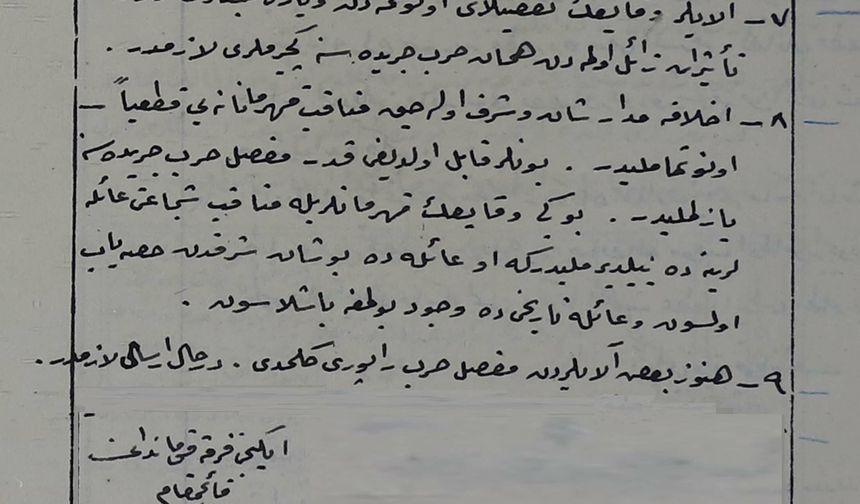 ٧ـ آلایلر وقایعك تفصیلاتی
تأثیرات زائل اولمه دن همان حرب جریده سنه کچیرملری لازمدر .
٨ـ اخلافه مدار شان وشرف اوله جق مناقب قهرمانانه یی قطعیاً
اونوتماملیدر . بونلر قابل اولدیغی قدر مفصل حرب جریده سنه
یازلملیدر . بو کبی وقایعك قهرمانلریله مناقب شجاعتی عائله
لرینه ده بیلدیرملیدرکه او عائله ده بو شان شرفدن حصه یاب
اولسون وعائله تاریخی ده وجود بولمغه باشلاسون .
٩ـ هنوز بعض آلایلردن مفصل حرب راپوری کلمدی . درحال ارسالی لازمدر .
ایکنجی فرقه قوماندانی
قائمقام